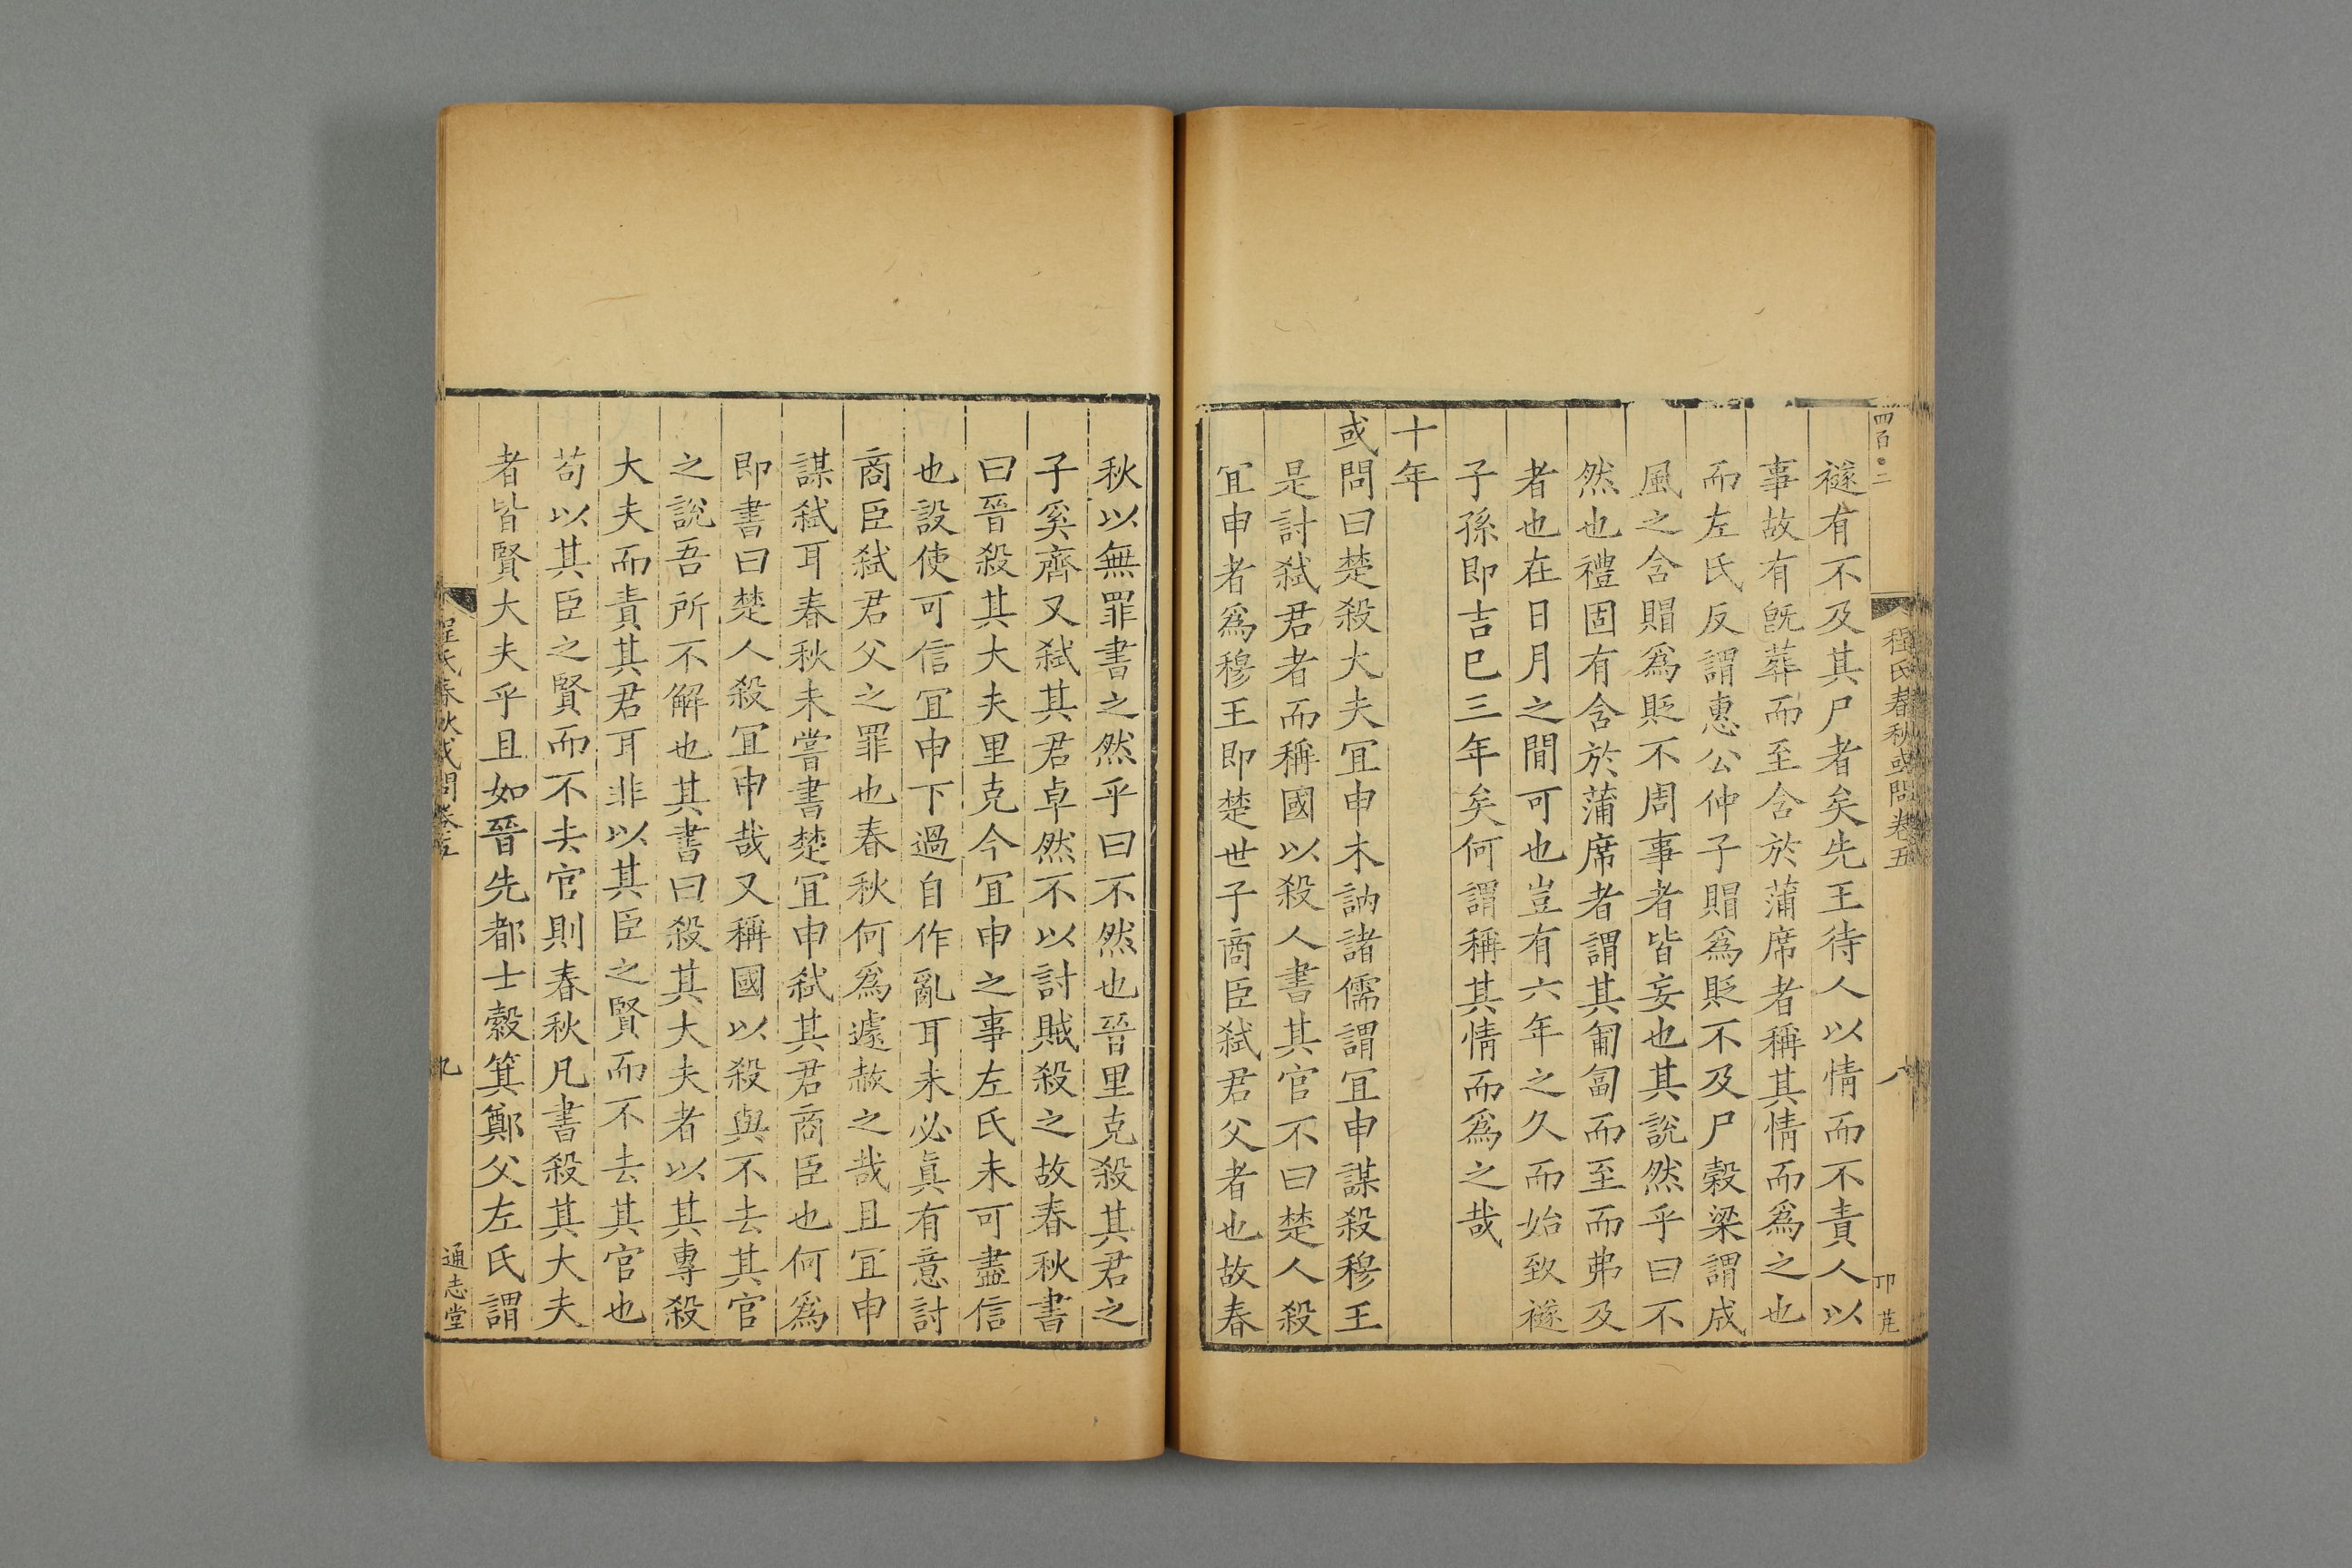 四百卅二
程氏春秋或問卷五
八
卬芃
襚有不及其尸者矣先王待人以情而不責人以
事故有旣葬而至含於蒲席者稱其情而爲之也
而左氏反謂惠公仲子賵爲貶不及尸榖梁謂成
風之含賵爲貶不周事者皆妄也其說然乎曰不
然也禮固有含於蒲席者謂其匍匐而至而弗及
者也在日月之間可也豈有六年之久而始致襚
子孫即吉巳三年矣何謂稱其情而爲之哉
十年
或問曰楚殺大夫冝申木訥諸儒謂冝申謀殺穆王
是討弑君者而稱國以殺人書其官不曰楚人殺
冝申者爲穆王即楚世子商臣弑君父者也故春
秋以無罪書之然乎曰不然也晉里克殺其君之
子奚齊又弑其君卓然不以討賊殺之故春秋書
曰晉殺其大夫里克今冝申之事左氏未可盡信
也設使可信冝申下過自作亂耳未必眞有意討
商臣弑君父之罪也春秋何爲遽赦之哉且冝申
謀弑耳春秋未嘗書楚冝申弑其君商臣也何爲
即書曰楚人殺冝申哉又稱國以殺與不去其官
之說吾所不解也其書曰殺其大夫者以其專殺
大夫而責其君耳非以其臣之賢而不去其官也
苟以其臣之賢而不去官則春秋凡書殺其大夫
者皆賢大夫乎且如晉先都士縠箕鄭父左氏謂
程氏春秋或問卷五
九
通志堂